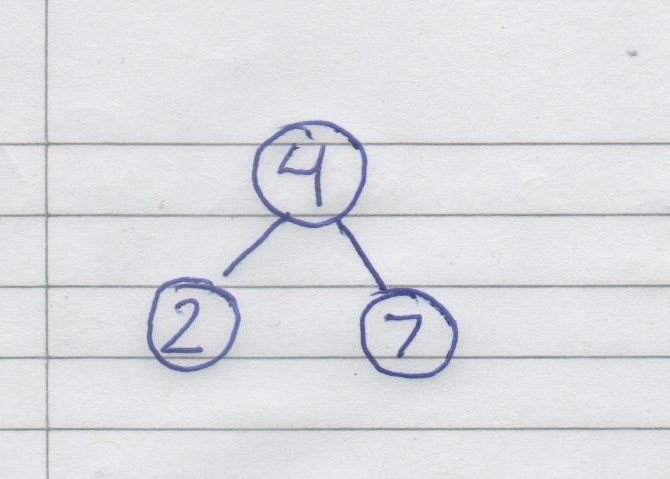 4
2 7